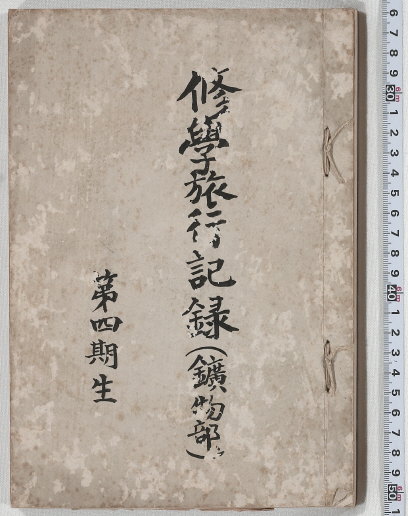 修學旅行記録（鑛物部）
第四期生
6 7 8 9 30 1 2 3 4 5 6 7 8 9 40 1 2 3 4 5 6 7 8 9 50 1